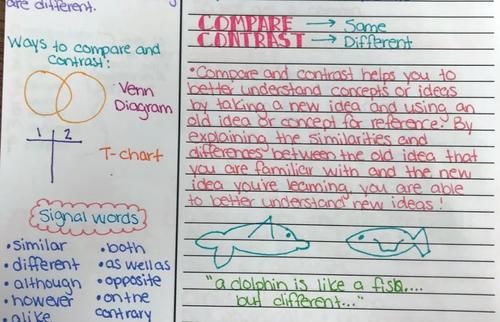 are different.
Ways to compare and
contrast:
Venn
Diagram
1 2
T-chart
Signal words
•similar
•different
•although
•however
•alike
•both
•as well as
•opposite
•on the
contrary
COMPARE → Same
CONTRAST → Different
•Compare and contrast helps you to
better understand concepts or ideas
by taking a new idea and using an
old idea or concept for reference. By
explaining the similarities and
differences between the old idea that
you are familiar with and the new
idea you're learning, you are able
to better understand new ideas!
"a dolphin is like a fish....
but different..."